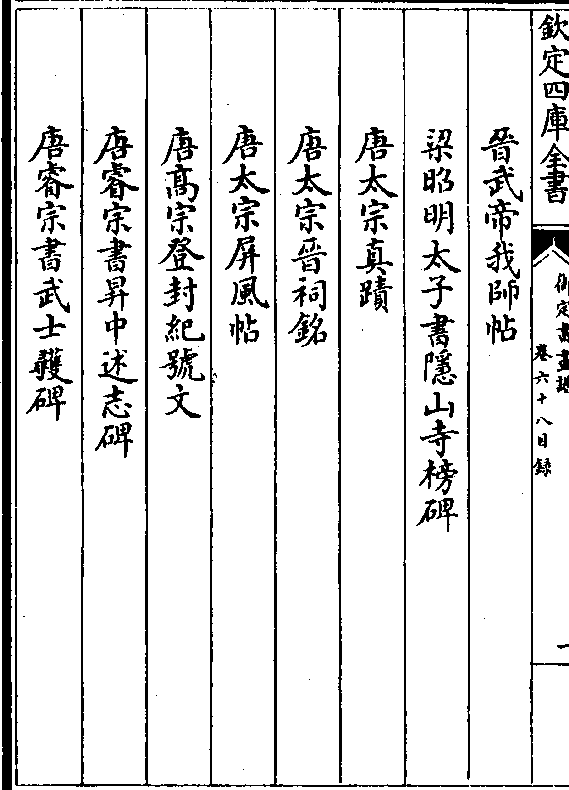 欽定四庫全書
御定書畫譜
卷六十八目錄
一
晉武帝我師帖
梁昭明太子書隱山寺榜碑
唐太宗真蹟
唐太宗晉祠銘
唐太宗屏風帖
唐高宗登封紀號文
唐睿宗書昇中述志碑
唐睿宗書武士彠碑